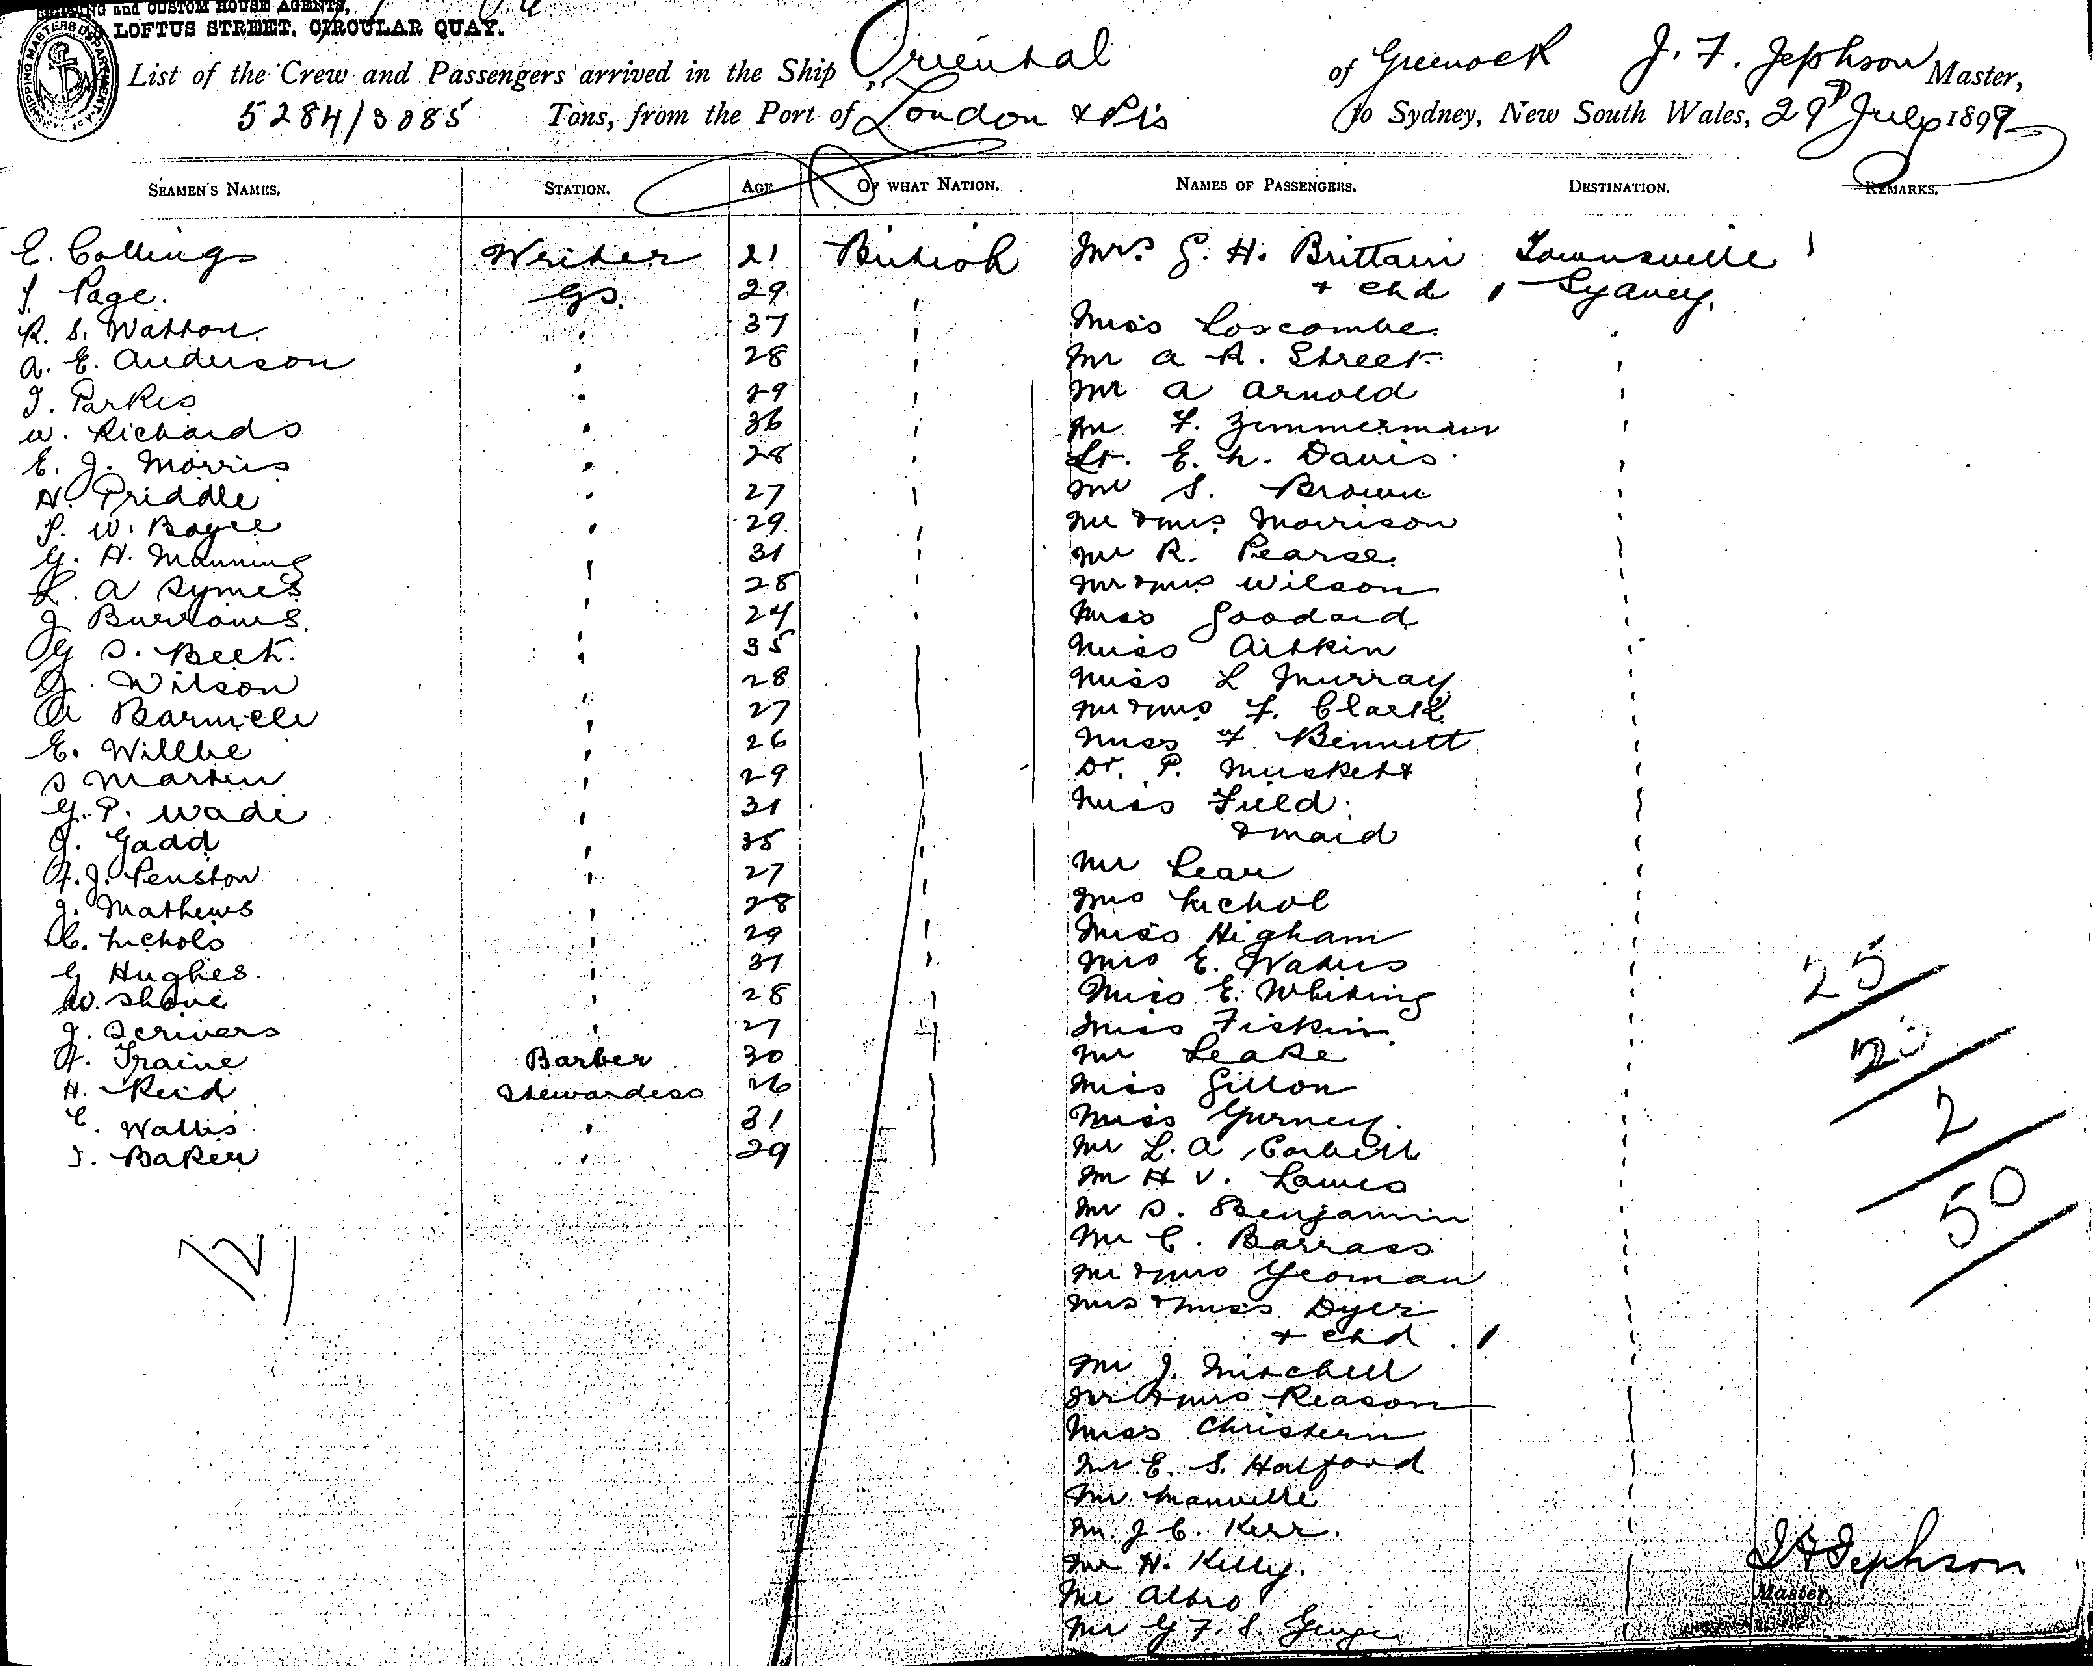 SHIPPING and CUSTOM HOUSE AGENTS,
LOFTUS STREET, CIRCULAR QUAY.
SHIPPING MASTERS DEPARTMENT
List of the Crew and Passengers arrived in the Ship Oriental of Greenock J. F. Jephson Master,
5284/3085 Tons, from the Port of London & Pts to Sydney, New South Wales, 29th July 1899
SEAMEN'S NAMES. STATION. AGE OF WHAT NATION. NAMES OF PASSENGERS. DESTINATION. REMARKS.
E. Collings Writer 21 British Mrs. G. H. Brittain Townsville 1
Page. GS. 29 " + chd 1 Sydney.
R. S. Watton " 37 " Miss Loscombe "
A. E. Anderson " 28 " Mr A R. Street "
J. Parkes " 29 " Mr A Arnold "
W. Richards " 36 " Mr F. Zimmerman "
E. J. Morris " 28 " Lt. E. N. Davis "
H. Priddle " 27 " Mr S. Brown "
P. W. Boyce " 29 " Mr & Mrs Morrison "
G. H. Manning " 31 " Mr R. Pearse "
L. A Symes " 28 " Mr & Mrs Wilson "
J Burrows " 24 " Miss Goodard "
G S. Beek. " 35 " Miss Aitkin "
Wilson " 28 " Miss L Murray "
A " 27 " Mr & Mrs F. Clark "
E. Willbe " 26 " Miss F. Bennett "
S Martin " 29 " Dr. P. Muskett "
G. P. Wade " 31 " Miss Field "
J. Gadd " 35 " & maid "
A. J. Penston " 27 " Mr Lear "
J. Mathews " 28 " Mrs Nichol "
C. Nichols " 29 " Miss Higham "
G Hughes " 31 " Mrs E. "
W. Shove " 28 " Miss E. Whiting " 25
J. Scrivers " 27 " Miss Fiskin "
A. Traine Barber 30 " Mr Leake " 2
H. Reid Stewardess 26 " Miss Gillon "
E. Wallis " 31 " Miss Gurney "
J. Baker " 29 " Mr L. A Corbett "
Mr H V. " 50
Mr S. Benjamin "
Mr C. Barrass "
Mr & Mrs Yeoman "
Mrs & Miss Dyer "
+ chd 1
Mr J. Mitchell "
Mr & Mrs Reason "
Miss Christern "
Mr E. S. Halford "
Mr Manville "
Mr. J C. Kerr. "
Mr H. Kelly. " J F Jephson
Mr Albio Master
Mr G F. S.